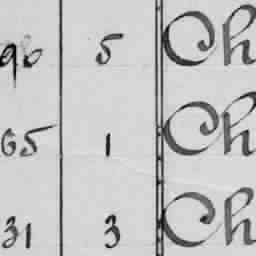 96 5 Ch
65 1 Ch
31 3 Ch